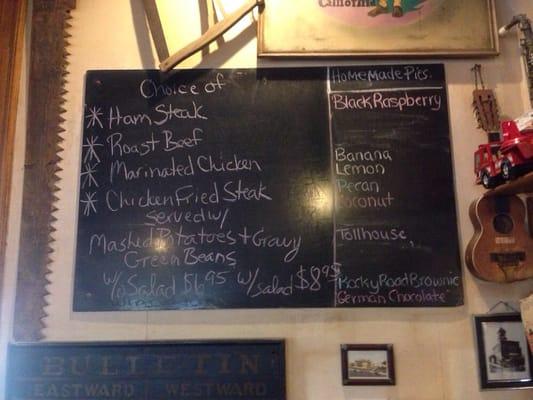 California
Choice of
Ham Steak
Roast Beef
Marinated Chicken
Chicken Fried Steak
served w/
Mashed Potatoes + Gravy
Green Beans
w/o Salad $6.95 w/ salad $8.95
Homemade Pies
Black Raspberry
Banana
Lemon
Pecan
Coconut
Tollhouse
Rocky Road Brownie
German Chocolate
BULLETIN
EASTWARD WESTWARD